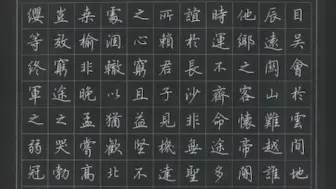 目吳會於雲間地
辰遠關山難越誰
他鄉之客懷帝閽
時運不齊命途多
誼於長沙非無聖
所賴君子見機達
之心窮且益堅不
處涸轍以猶歡北
桑榆非晚孟嘗高
豈效窮途之哭勃
纓等終軍之弱冠